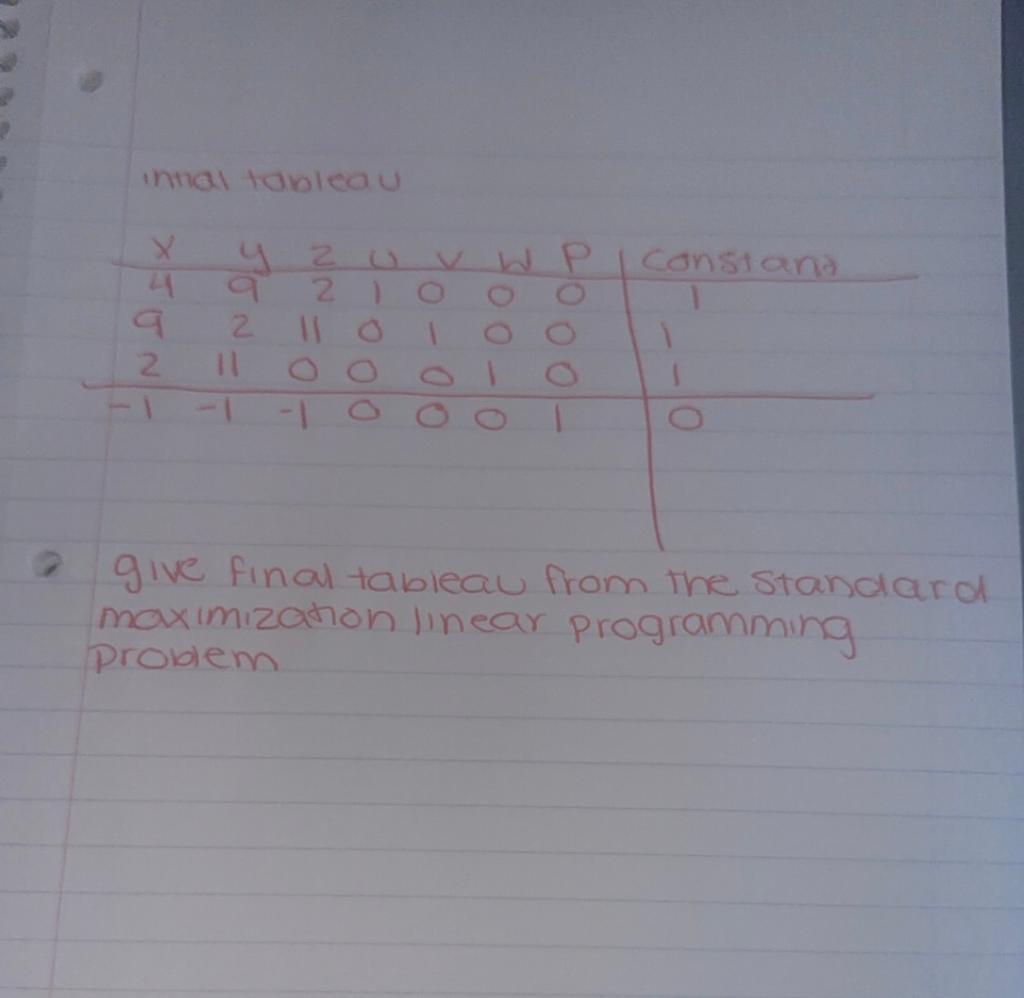 initial tableau
x y z u v w P constant
4 9 2 1 0 0 0 1
9 2 11 0 1 0 0 1
2 11 0 0 0 1 0 1
-1 -1 -1 0 0 0 1 0
give final tableau from the standard
maximization linear programming
problem